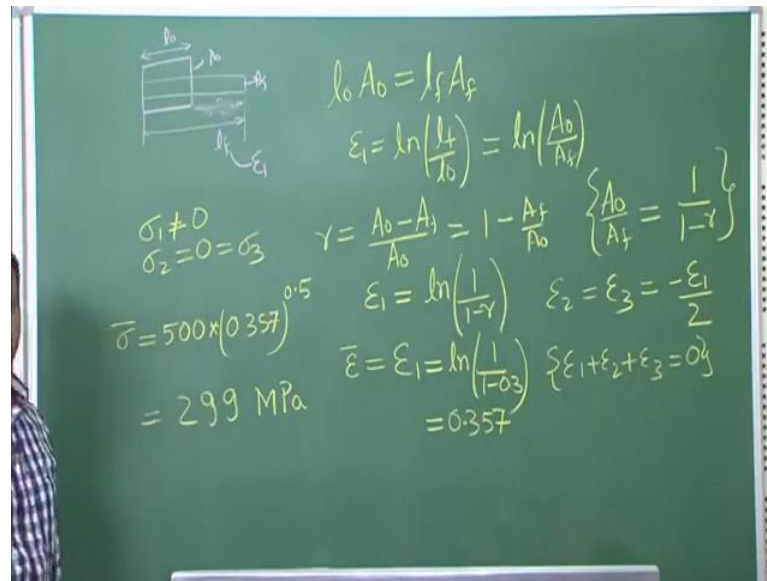 l₀
A₀
A_f
l_f
ε₁
l₀A₀ = l_f A_f
ε₁ = ln(l_f/l₀) = ln(A₀/A_f)
σ₁ ≠ 0
σ₂ = 0 = σ₃
r = (A₀ - A_f)/A₀ = 1 - A_f/A₀ {A₀/A_f = 1/(1-r)}
ε₁ = ln(1/(1-r)) ε₂ = ε₃ = -ε₁/2
σ̄ = 500×(0.357)^0.5
= 299 MPa
ε̄ = ε₁ = ln(1/(1-0.3)) {ε₁+ε₂+ε₃ = 0}
= 0.357